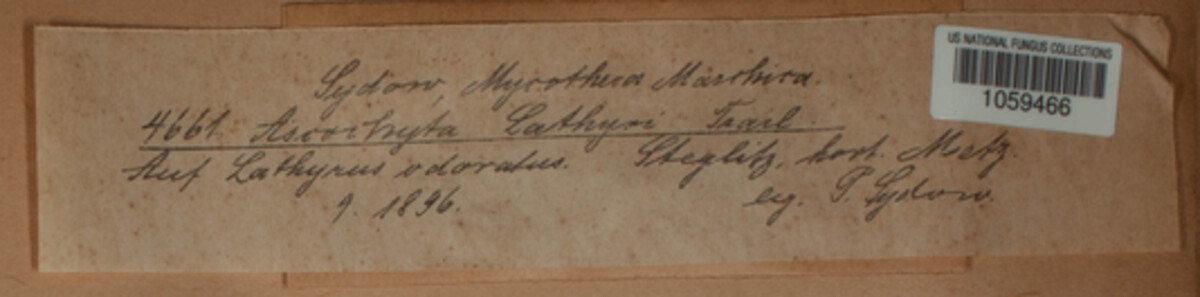 Sydow, Mycotheca Marchica.
4661. Ascochyta Lathyri Trail
Auf Lathyrus odoratus. Steglitz, hort. Metz.
9. 1896. leg. P. Sydow.
US NATIONAL FUNGUS COLLECTIONS
1059466